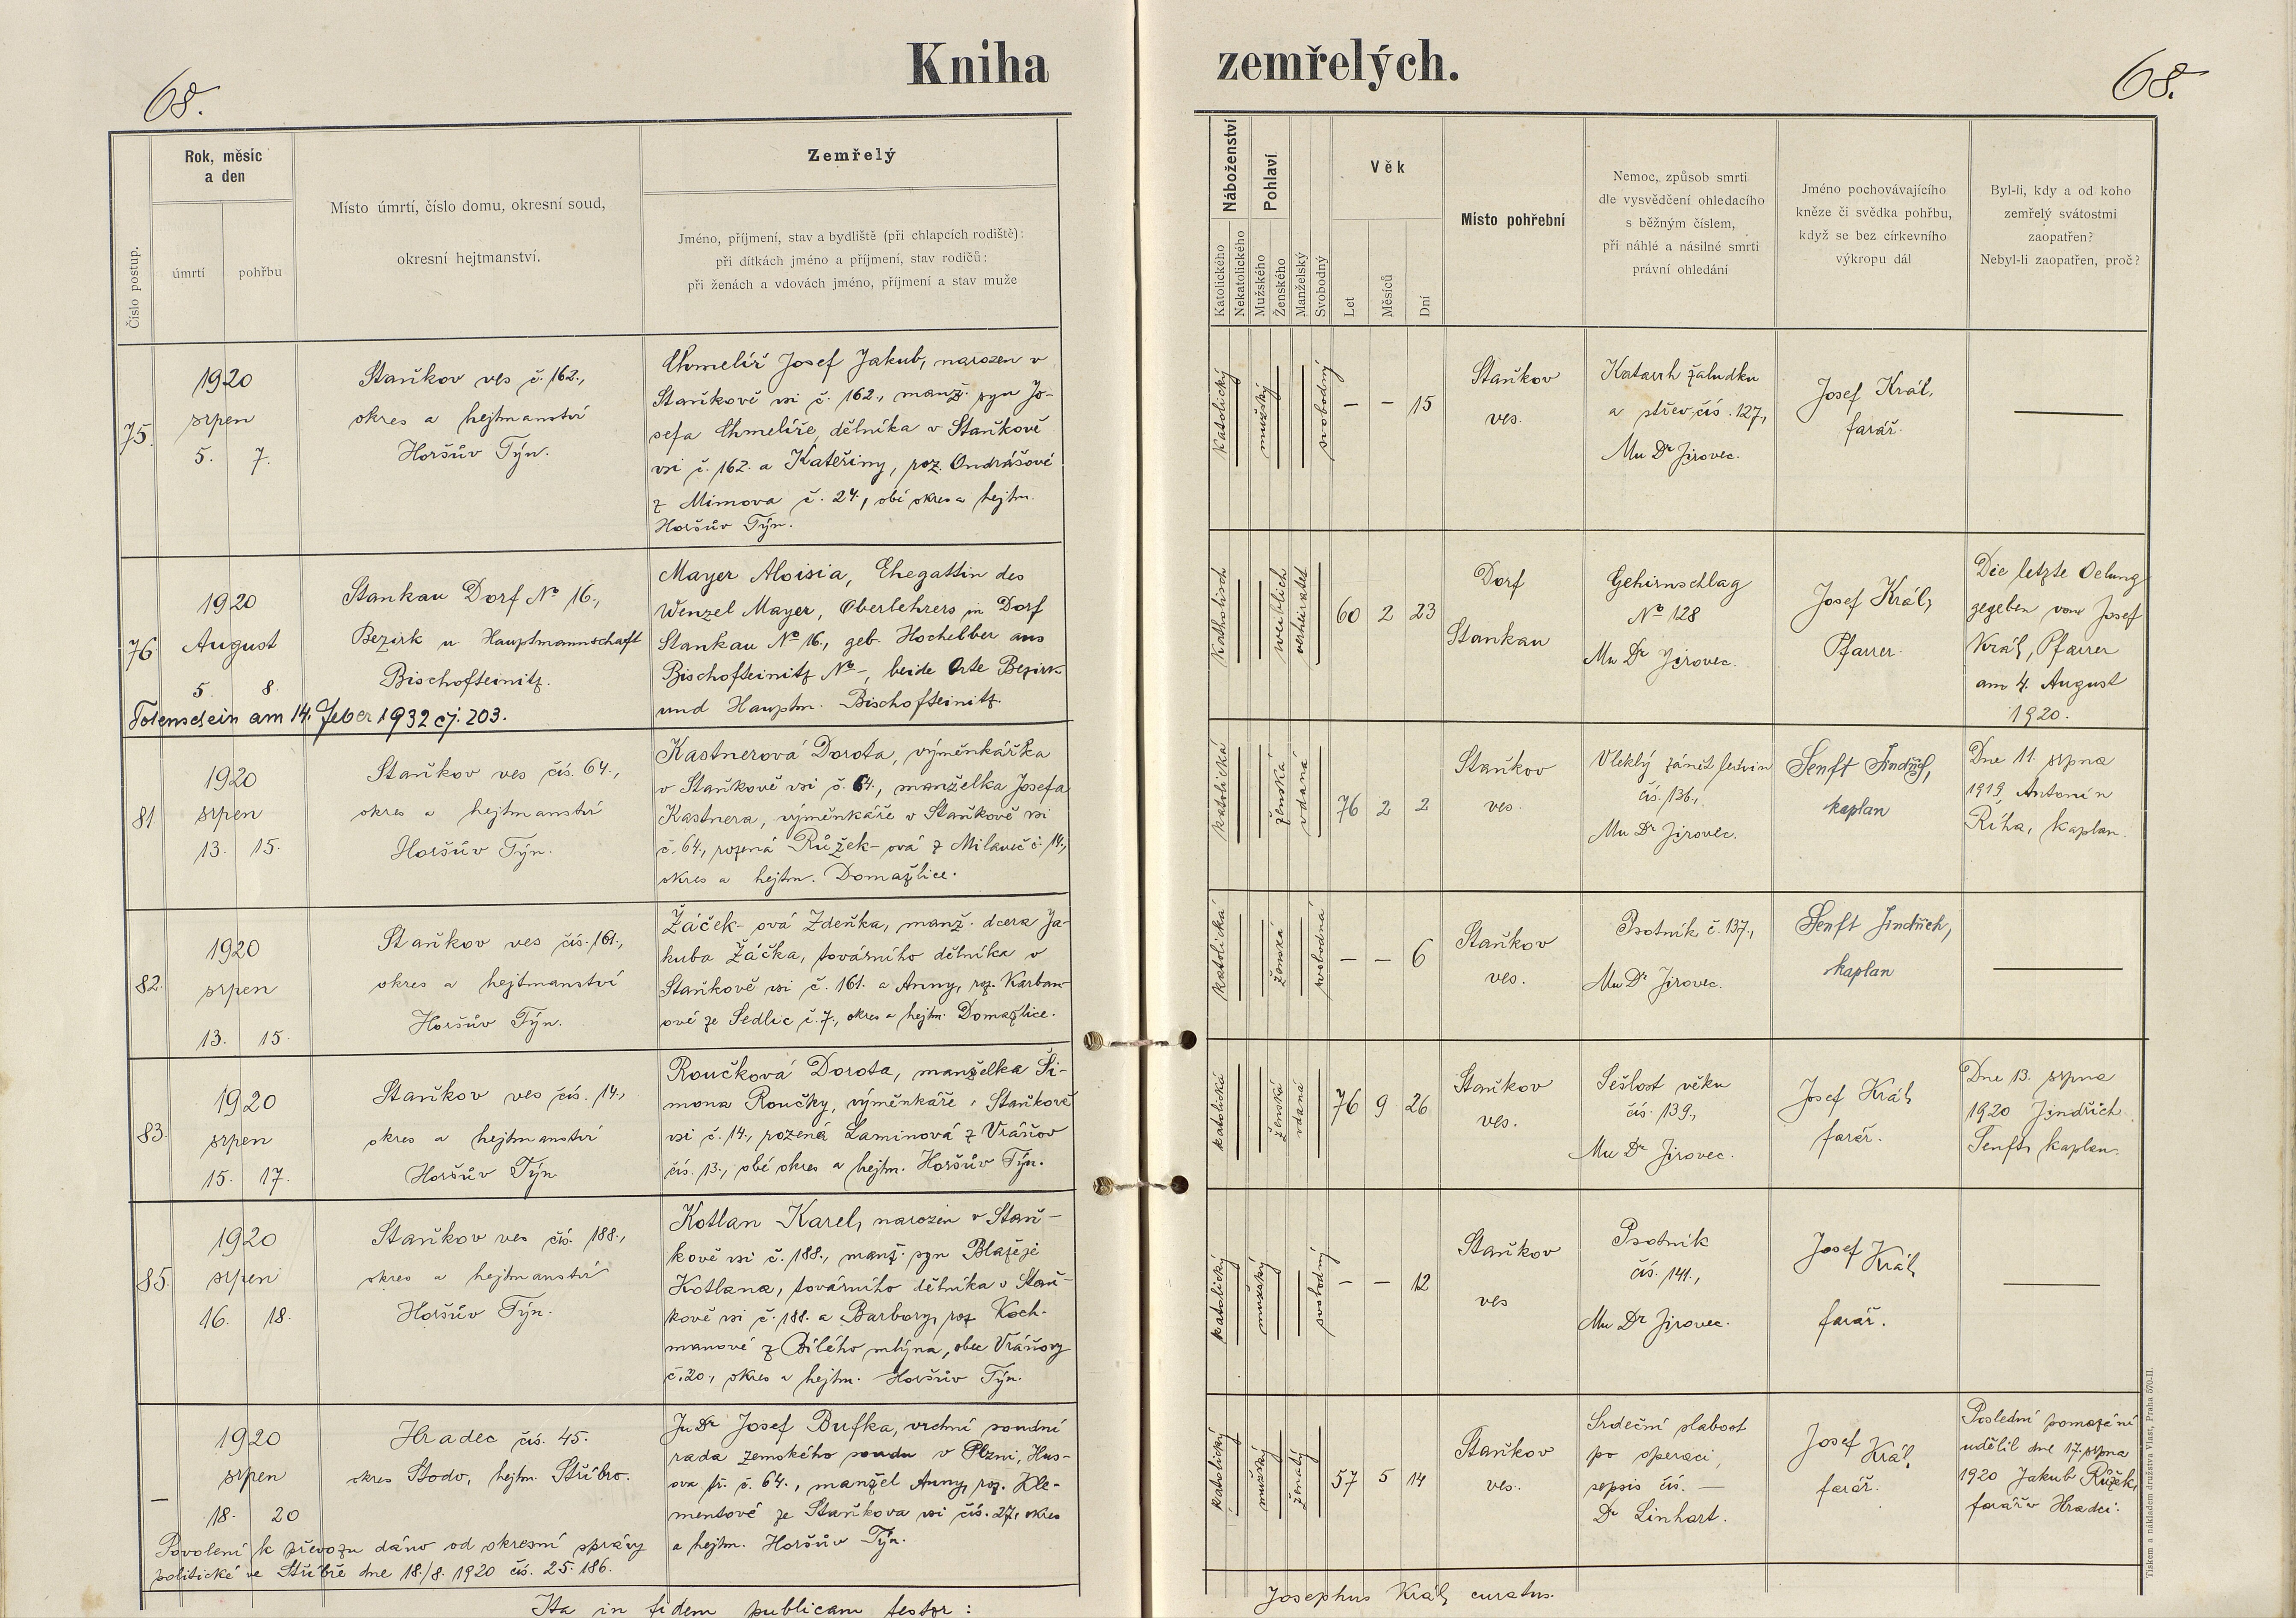 Kniha zemřelých.
68.
68.
Číslo postup.
Rok, měsíc
a den
úmrtí
pohřbu
Místo úmrtí, číslo domu, okresní soud,
okresní hejtmanství.
Zemřelý
Jméno, příjmení, stav a bydliště (při chlapcích rodiště):
při dítkách jméno a příjmení, stav rodičů:
při ženách a vdovách jméno, příjmení a stav muže
Náboženství
Katolického
Nekatolického
Pohlaví
Mužského
Ženského
Manželský
Svobodný
Věk
Let
Měsíců
Dní
Místo pohřební
Nemoc, způsob smrti
dle vysvědčení ohledacího
s běžným číslem,
při náhlé a násilné smrti
právní ohledání
Jméno pochovávajícího
kněze či svědka pohřbu,
když se bez církevního
výkropu dál
Byl-li, kdy a od koho
zemřelý svátostmi
zaopatřen?
Nebyl-li zaopatřen, proč?
75.
1920
srpen
5. 7.
Staňkov ves č. 162.,
okres a hejtmanství
Horšův Týn.
Chmelíř Josef Jakub, narozen v
Staňkově vsi č. 162., manž. syn Jo-
sefa Chmelíře, dělníka v Staňkově
vsi č. 162. a Kateřiny, roz. Ondrášové
z Mimova č. 24., obé okres a hejtm.
Horšův Týn.
Katolický
mužský
svobodný
— — 15
Staňkov
ves.
Katarrh žaludku
a střev, čís. 127.,
Mu Dr Jirovec.
Josef Král,
farář.
—
76.
1920
August
5. 8.
Stankau Dorf No 16.,
Bezirk u Hauptmannschaft
Bischofteinitz.
Totenschein am 14. Feber 1932 čj. 203.
Mayer Aloisia, Ehegattin des
Wenzel Mayer, Oberlehrers in Dorf
Stankau No 16., geb. Hochelber aus
Bischofteinitz No –, beide Orte Bezirk
und Hauptm. Bischofteinitz.
Katholisch
weiblich
verheiratet
60 2 23
Dorf
Stankau
Gehirnschlag
No 128
Mu Dr Jirovec.
Josef Král,
Pfarrer.
Die letzte Oelung
gegeben von Josef
Král, Pfarrer
am 4. August
1920.
81.
1920
srpen
13. 15.
Staňkov ves čís. 64.,
okres a hejtmanství
Horšův Týn.
Kastnerová Dorota, výměnkářka
v Staňkově vsi č. 64., manželka Josefa
Kastnera, výměnkáře v Staňkově vsi
č. 64., rozená Růžek-ová z Milaveč č. 14.,
okres a hejtm. Domažlice.
katolická
ženská
vdaná
76 2 2
Staňkov
ves.
Vleklý zánět ledvin
čís. 136.,
Mu Dr Jirovec.
Senft Jindřich,
kaplan
Dne 11. srpna
1919 Antonín
Říha, kaplan.
82.
1920
srpen
13. 15.
Staňkov ves čís. 161.,
okres a hejtmanství
Horšův Týn.
Žáček-ová Zdeňka, manž. dcera Ja-
kuba Žáčka, továrního dělníka v
Staňkově vsi č. 161. a Anny, roz. Karban-
ové ze Sedlic č. 7., okres a hejtm. Domažlice.
katolická
ženská
svobodná
— — 6
Staňkov
ves.
Psotník č. 137.,
Mu Dr Jirovec.
Senft Jindřich,
kaplan
—
83.
1920
srpen
15. 17.
Staňkov ves čís. 14.,
okres a hejtmanství
Horšův Týn
Roučková Dorota, manželka Ši-
mona Roučky, výměnkáře v Staňkově
vsi č. 14., rozená Laminová z Vráňov
čís. 13., obé okres a hejtm. Horšův Týn.
katolická
ženská
vdaná
76 9 26
Staňkov
ves.
Sešlost věku
čís. 139.,
Mu Dr Jirovec.
Josef Král,
farář.
Dne 13. srpna
1920 Jindřich
Senft, kaplan.
85.
1920
srpen
16. 18.
Staňkov ves čís. 188.,
okres a hejtmanství
Horšův Týn.
Kotlan Karel, narozen v Staň-
kově vsi č. 188., manž. syn Blažeje
Kotlana, továrního dělníka v Staň-
kově vsi č. 188. a Barbory, roz. Koch-
manové z Bílého mlýna, obec Vráňovy
č. 20., okres a hejtm. Horšův Týn.
katolický
mužský
svobodný
— — 12
Staňkov
ves
Psotník
čís. 141.,
Mu Dr Jirovec.
Josef Král,
farář.
—
—
1920
srpen
18. 20
Hradec čís. 45.
okres Stodo, hejtm. Stříbro.
Povolení k převozu dáno od okresní správy
politické ve Stříbře dne 18./8. 1920 čís. 25.186.
Ju Dr Josef Bufka, vrchní soudní
rada zemského soudu v Plzni, Hus-
ova tř. č. 64., manžel Anny, roz. Kle-
mentové ze Staňkova vsi čís. 27, okres
a hejtm. Horšův Týn.
katolický
mužský
ženatý
57 5 14
Staňkov
ves.
Srdeční slabost
po operaci,
sepsis čís. —
Dr Linhart.
Josef Král,
farář.
Poslední pomazání
udělil dne 17. srpna
1920 Jakub Růžek,
farář v Hradci.
Ita in fidem publicam testor:
Josephus Král, curatus.
Tiskem a nákladem družstva Vlast, Praha 570-II.